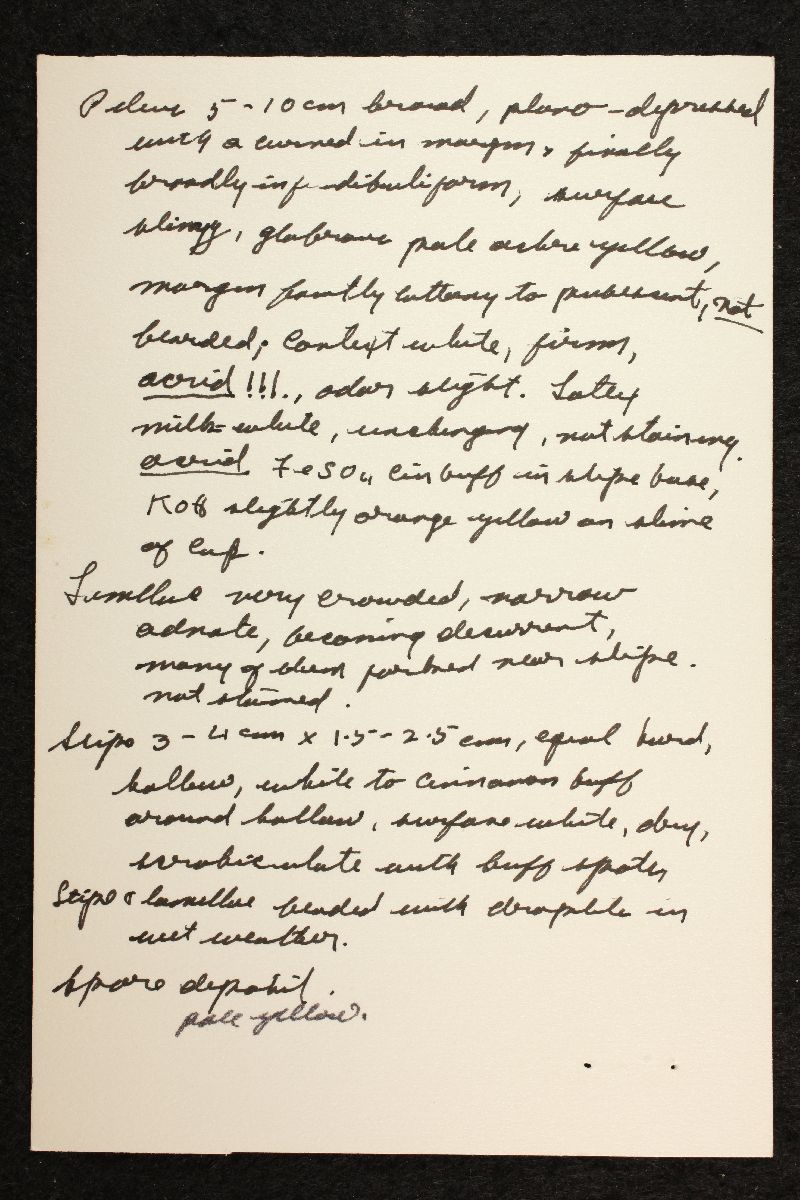 Pileus 5-10 cm broad, plano-depressed
with a curved in margin, finally
broadly infundibuliform, surface
slimy, glabrous pale ochre yellow,
margin faintly cottony to pubescent, not
bearded; Context white, firm,
acrid!!!., odor slight. Latex
milk-white, unchanging, not staining.
acrid FeSO4 cin buff in stipe base,
KOH slightly orange yellow on slime
of cap.
Lamellae very crowded, narrow
adnate, becoming decurrent,
many of them forked near stipe.
not stained.
Stipe 3-4 cm x 1.5-2.5 cm, equal hard,
hollow, white to cinnamon buff
around hollow, surface white, dry,
scrobiculate with buff spots
Stipe & lamellae beaded with droplets in
wet weather.
Spore deposit.
pale yellow.